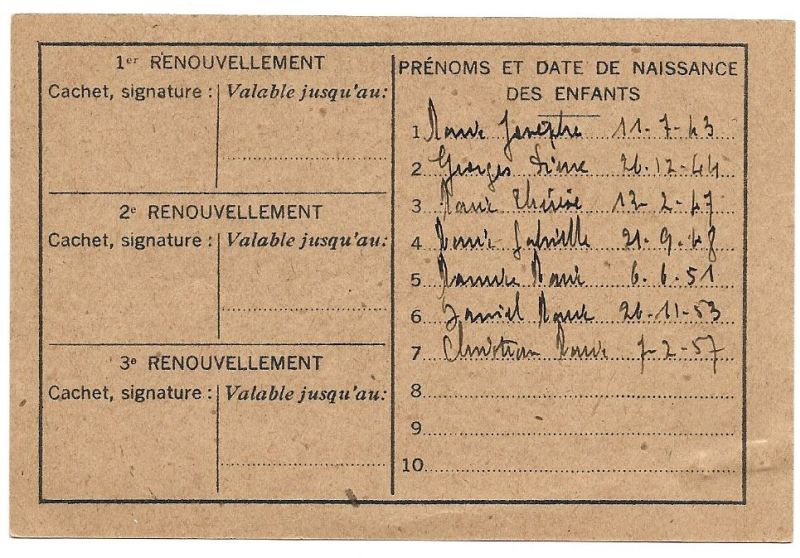 1er RENOUVELLEMENT
Cachet, signature : Valable jusqu'au:
2e RENOUVELLEMENT
Cachet, signature : Valable jusqu'au:
3e RENOUVELLEMENT
Cachet, signature : Valable jusqu'au:
PRÉNOMS ET DATE DE NAISSANCE
DES ENFANTS
1 Marie Josèphe 11-7-43
2 Georges 26-12-44
3 Marie Thérèse 12-2-47
4 Marie Gabrielle 21-9-48
5 Marie 6-6-51
6 Daniel Marie 26-11-53
7 Christian Marie 7-2-57
8
9
10